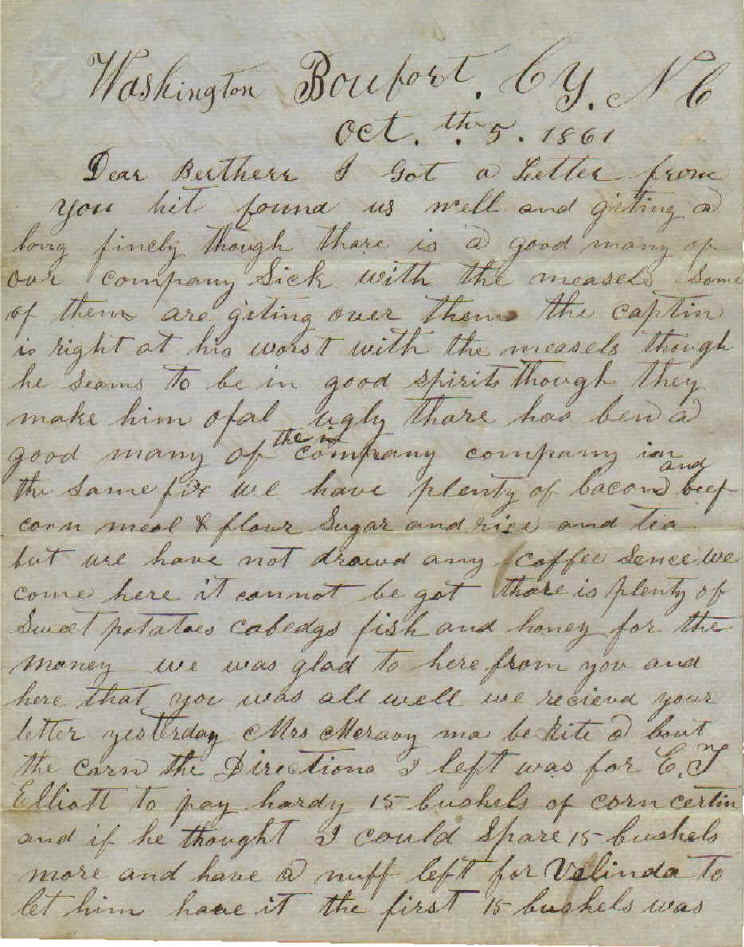 Washington Boufort. Cy. N C
Oct. th 5. 1861
Dear Bertherr I Got a Letter from
you hit found us well and geting a
long finely though thare is a good many of
our company Sick with the measels some
of them are geting over them the captin
is right at his worst with the measels though
he seams to be in good spirits though they
make him ofal ugly thare has ben a
good many of the company company in
the same fix we have plenty of bacon and beef
corn meal & flour Sugar and rice and tea
but we have not drawd any coffee Sence we
come here it cannot be got thare is plenty of
Sweet potatoes cabedgs fish and honey for the
money we was glad to here from you and
here that you was all well we reciend your
letter yesterday Mrs Meravy ma be Rite a bout
the corn the Directions I left was for E. T
Elliott to pay hardy 15 bushels of corn certin
and if he thought I could Spare 15 bushels
more and have a nuff left for Velinda to
let him have it the first 15 bushels was